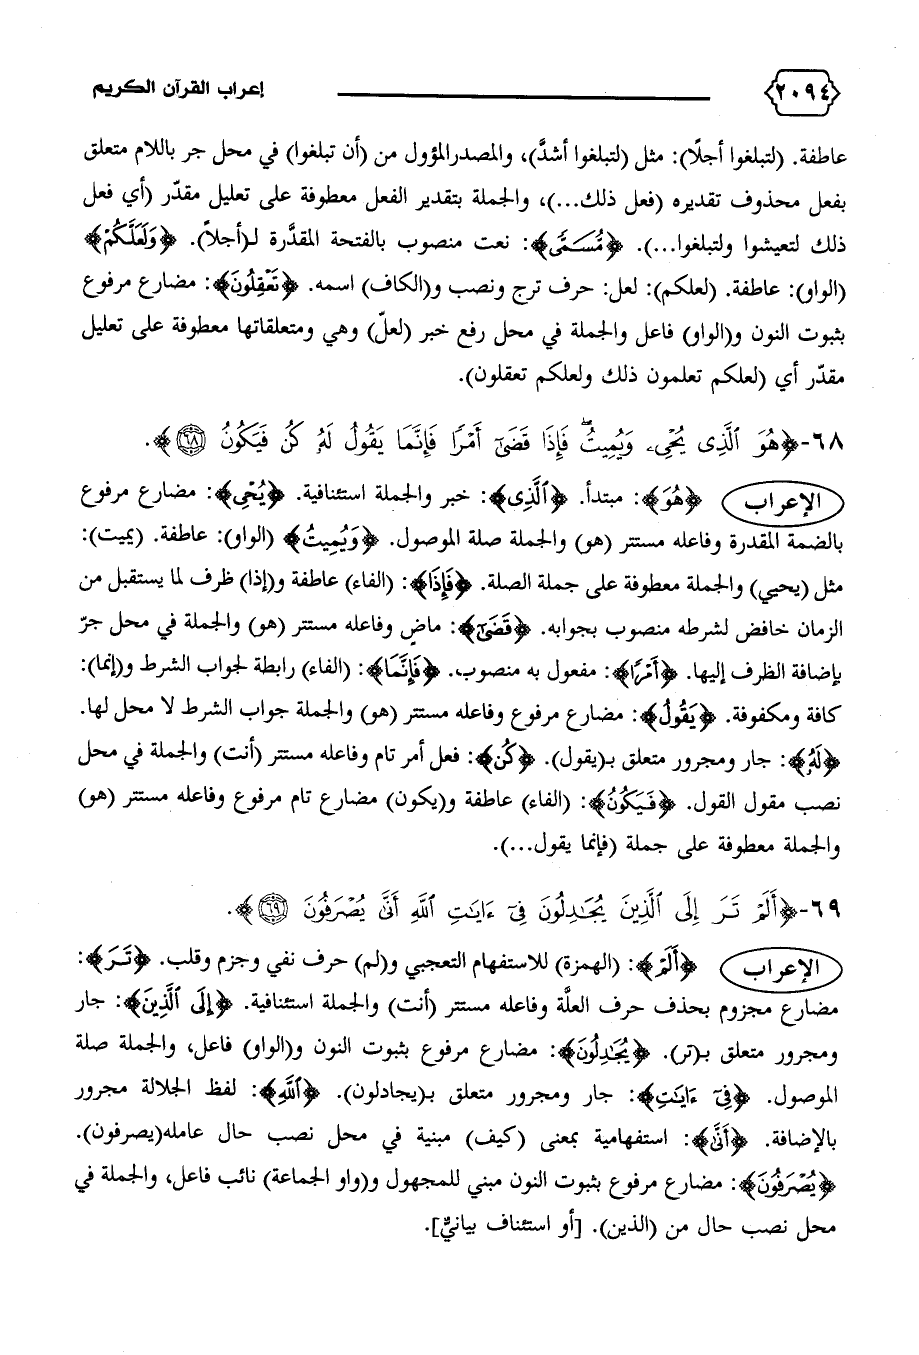 ٢٠٩٤ إعراب القرآن الكريم
عاطفة. (لتبلغوا أجلًا): مثل (لتبلغوا أشدَّ)، والمصدر المؤول من (أن تبلغوا) في محل جر باللام متعلق
بفعل محذوف تقديره (فعل ذلك...)، والجملة بتقدير الفعل معطوفة على تعليل مقدّر (أي فعل
ذلك لتعيشوا ولتبلغوا...). ﴿مُّسَمًّى﴾: نعت منصوب بالفتحة المقدَّرة لـ(أجلاً). ﴿وَلَعَلَّكُمْ﴾
(الواو): عاطفة. (لعلكم): لعل: حرف ترج ونصب و(الكاف) اسمه. ﴿تَعْقِلُونَ﴾: مضارع مرفوع
بثبوت النون و(الواو) فاعل والجملة في محل رفع خبر (لعلّ) وهي ومتعلقاتها معطوفة على تعليل
مقدّر أي (لعلكم تعلمون ذلك ولعلكم تعقلون).
٦٨-﴿هُوَ ٱلَّذِى يُحْىِۦ وَيُمِيتُ ۖ فَإِذَا قَضَىٰٓ أَمْرًا فَإِنَّمَا يَقُولُ لَهُۥ كُن فَيَكُونُ ٦٨﴾.
الإعراب ﴿هُوَ﴾: مبتدأ. ﴿ٱلَّذِى﴾: خبر والجملة استئنافية. ﴿يُحْىِ﴾: مضارع مرفوع
بالضمة المقدرة وفاعله مستتر (هو) والجملة صلة الموصول. ﴿وَيُمِيتُ﴾ (الواو): عاطفة. (يميت):
مثل (يحيي) والجملة معطوفة على جملة الصلة. ﴿فَإِذَا﴾: (الفاء) عاطفة و(إذا) ظرف لما يستقبل من
الزمان خافض لشرطه منصوب بجوابه. ﴿قَضَىٰٓ﴾: ماضٍ وفاعله مستتر (هو) والجملة في محل جرّ
بإضافة الظرف إليها. ﴿أَمْرًا﴾: مفعول به منصوب. ﴿فَإِنَّمَا﴾: (الفاء) رابطة لجواب الشرط و(إنما):
كافة ومكفوفة. ﴿يَقُولُ﴾: مضارع مرفوع وفاعله مستتر (هو) والجملة جواب الشرط لا محل لها.
﴿لَهُۥ﴾: جار ومجرور متعلق بـ(يقول). ﴿كُن﴾: فعل أمر تام وفاعله مستتر (أنت) والجملة في محل
نصب مقول القول. ﴿فَيَكُونُ﴾: (الفاء) عاطفة و(يكون) مضارع تام مرفوع وفاعله مستتر (هو)
والجملة معطوفة على جملة (فإنما يقول...).
٦٩-﴿أَلَمْ تَرَ إِلَى ٱلَّذِينَ يُجَٰدِلُونَ فِىٓ ءَايَٰتِ ٱللَّهِ أَنَّىٰ يُصْرَفُونَ ٦٩﴾.
الإعراب ﴿أَلَمْ﴾: (الهمزة) للاستفهام التعجبي و(لم) حرف نفي وجزم وقلب. ﴿تَرَ﴾:
مضارع مجزوم بحذف حرف العلَّة وفاعله مستتر (أنت) والجملة استئنافية. ﴿إِلَى ٱلَّذِينَ﴾: جار
ومجرور متعلق بـ(تر). ﴿يُجَٰدِلُونَ﴾: مضارع مرفوع بثبوت النون و(الواو) فاعل، والجملة صلة
الموصول. ﴿فِىٓ ءَايَٰتِ﴾: جار ومجرور متعلق بـ(يجادلون). ﴿ٱللَّهِ﴾: لفظ الجلالة مجرور
بالإضافة. ﴿أَنَّىٰ﴾: استفهامية بمعنى (كيف) مبنية في محل نصب حال عامله(يصرفون).
﴿يُصْرَفُونَ﴾: مضارع مرفوع بثبوت النون مبني للمجهول و(واو الجماعة) نائب فاعل، والجملة في
محل نصب حال من (الذين). [أو استئناف بيانيٌّ].